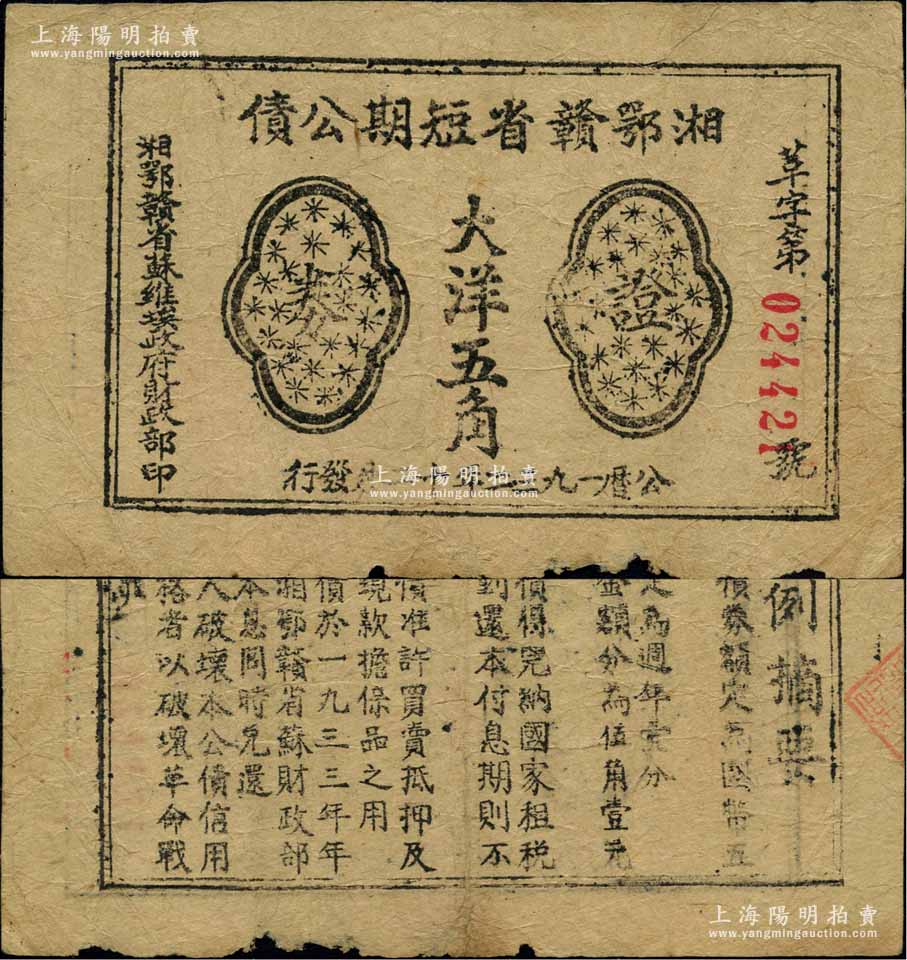 上海陽明拍賣
www.yangmingauction.com
湘鄂贛省短期公債
革字第
024421
號
證
大洋五角
券
湘鄂贛省蘇維埃政府財政部印
公曆一九
發行
上海陽明拍賣
www.yangmingauction.com
例摘要
債券額定為國幣五
定為週年壹分
金額分為伍角壹元
債得完納國家租税
到還本付息期則不
債准許買賣抵押及
現款擔保品之用
債於一九三三年年
湘鄂贛省蘇財政部
本息同時兌還
人破壞本公債信用
格者以破壞革命戰
上海陽明拍賣
www.yangmingauction.com